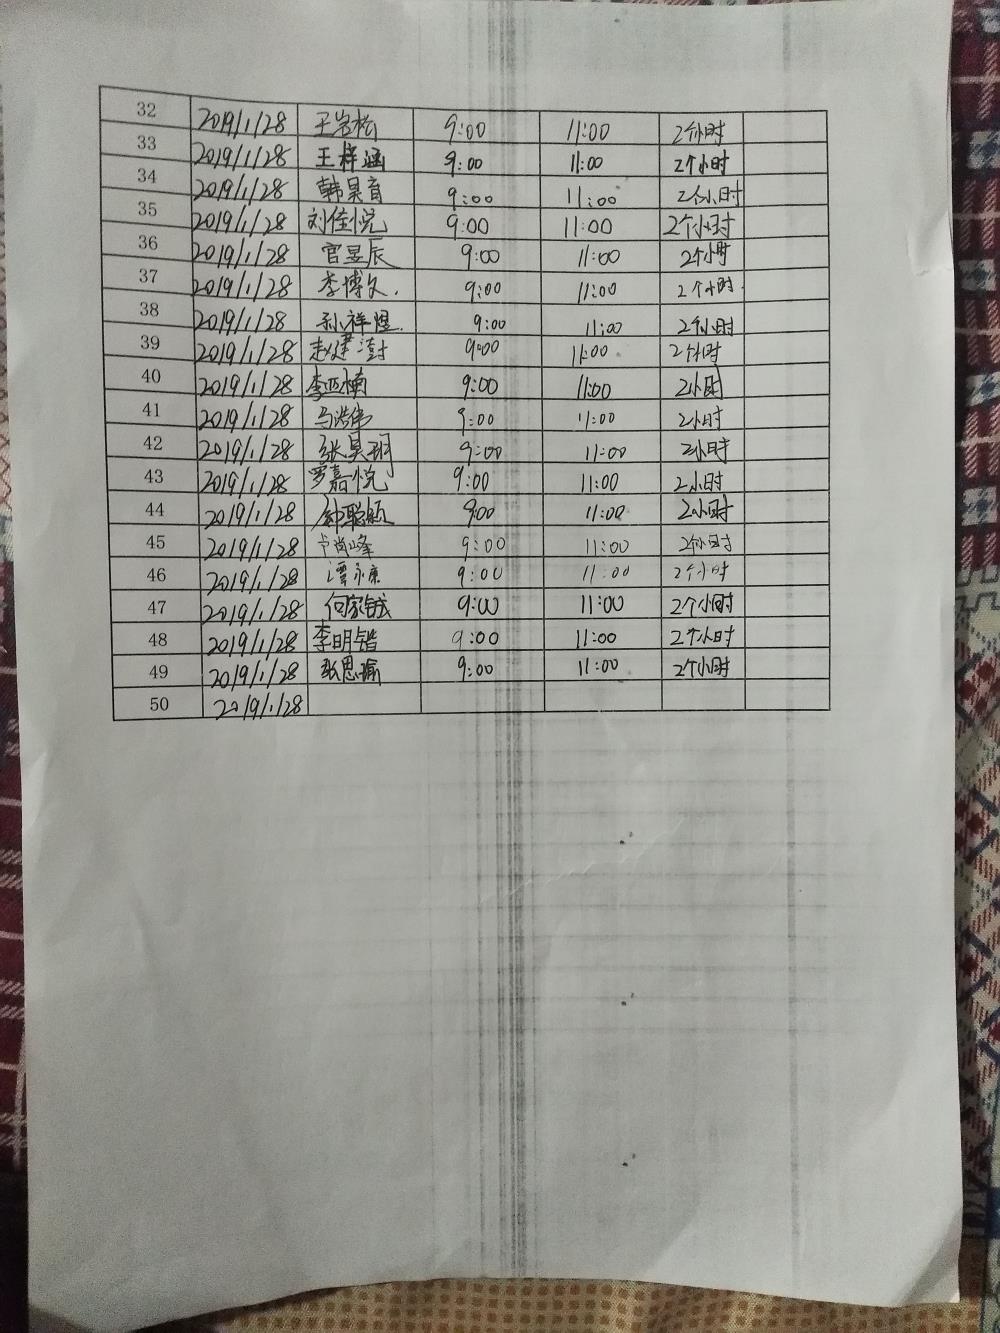 32 2019/1/28 王岩松 9:00 11:00 2个小时
33 2019/1/28 王梓涵 9:00 11:00 2个小时
34 2019/1/28 韩昊育 9:00 11:00 2个小时
35 2019/1/28 刘佳悦 9:00 11:00 2个小时
36 2019/1/28 官昱辰 9:00 11:00 2个小时
37 2019/1/28 李博文. 9:00 11:00 2个小时.
38 2019/1/28 孙祥煜. 9:00 11:00 2个小时
39 2019/1/28 赵健澍 9:00 11:00 2个小时
40 2019/1/28 李亚楠 9:00 11:00 2小时
41 2019/1/28 马浩伟 9:00 11:00 2小时
42 2019/1/28 张昊玥 9:00 11:00 2小时
43 2019/1/28 罗嘉悦 9:00 11:00 2小时
44 2019/1/28 9:00 11:00 2小时
45 2019/1/28 卢尚峰 9:00 11:00 2个小时
46 2019/1/28 谭永康 9:00 11:00 2个小时
47 2019/1/28 何家铖 9:00 11:00 2个小时
48 2019/1/28 李明锴 9:00 11:00 2个小时
49 2019/1/28 张思瑜 9:00 11:00 2个小时
50 2019/1/28